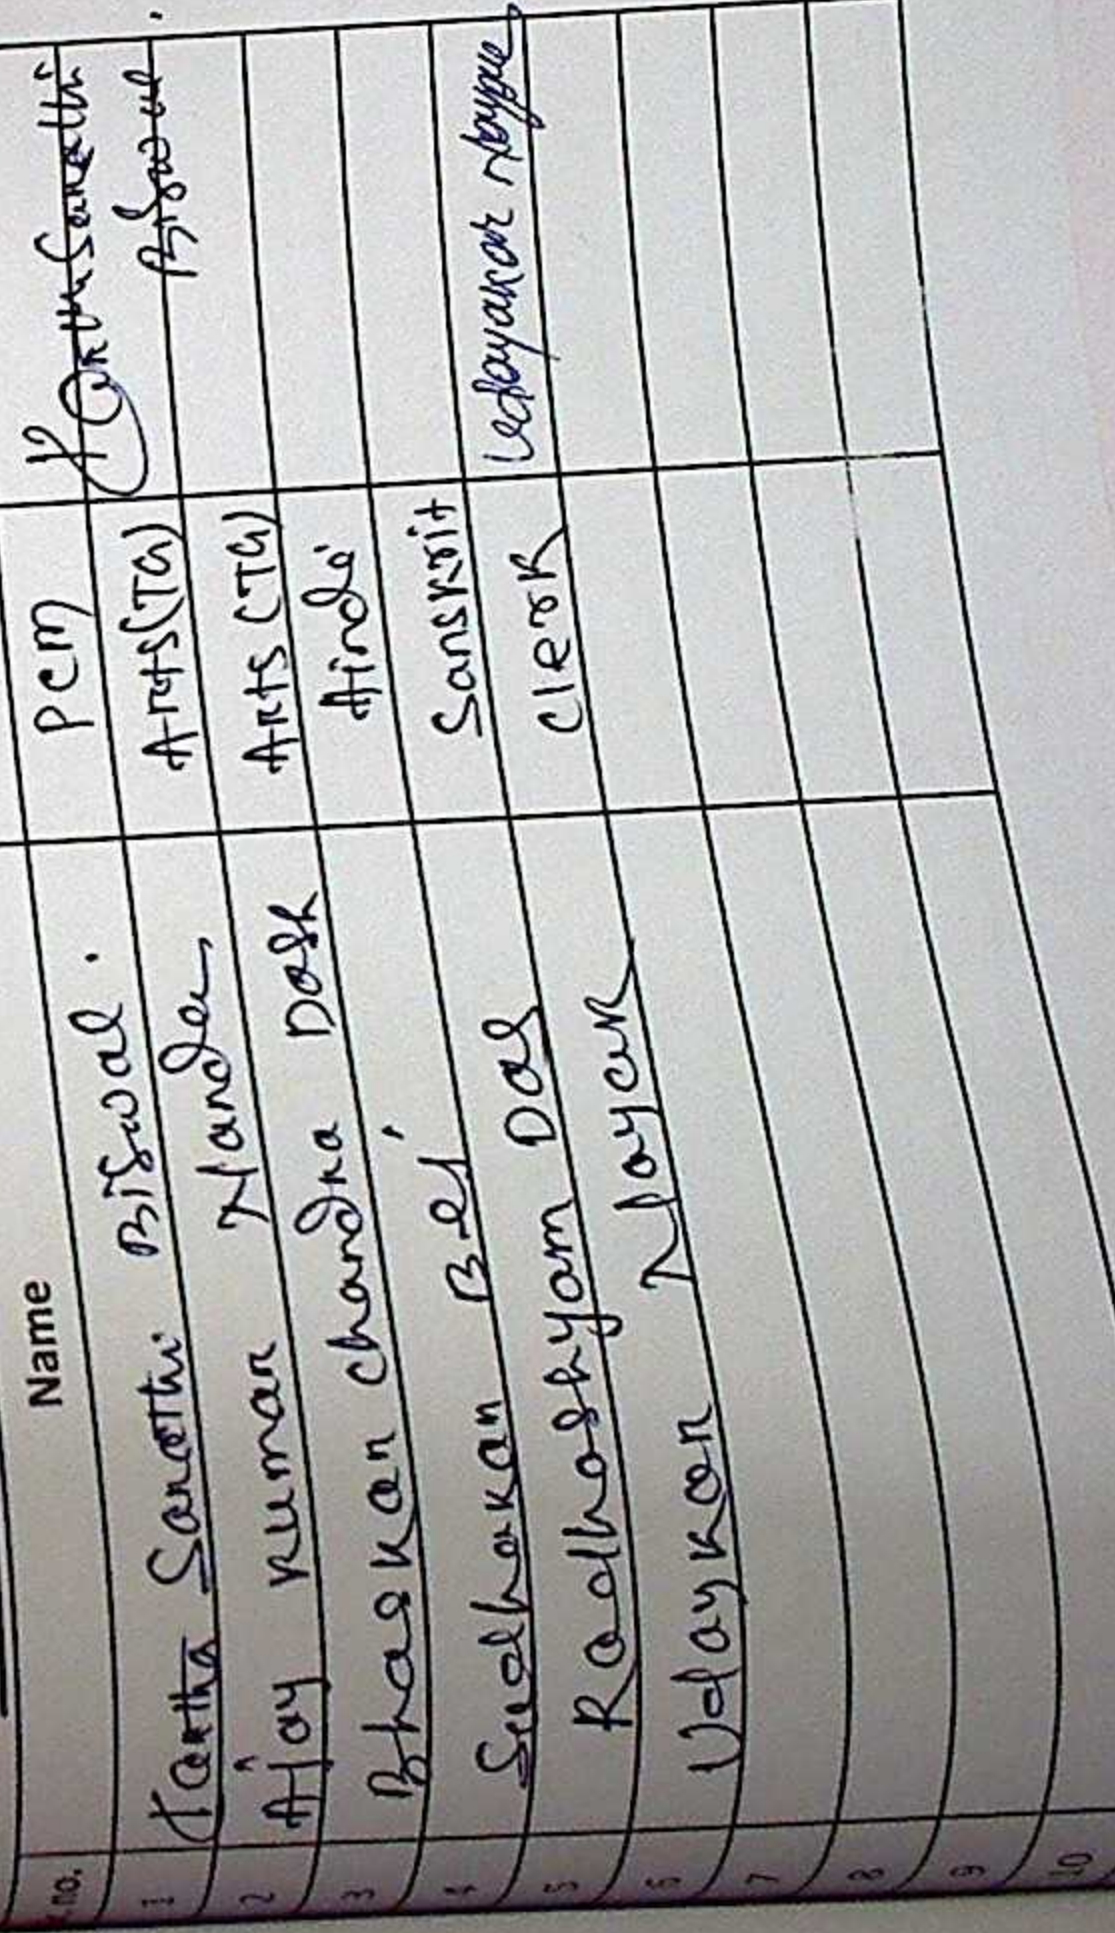 r.no. Name
1 Partha Sarathi Biswal. PCM Partha Sarathi Biswal.
2 Ajay Kumar Nanda Arts(TG)
3 Bhaskar Chandra Dash Arts (TG)
4 Sudhakar Bej Hindi
5 Radhashyam Das Sanskrit
6 Udaykar Nayak Clerk Udayakar Nayak
7
8
9
10